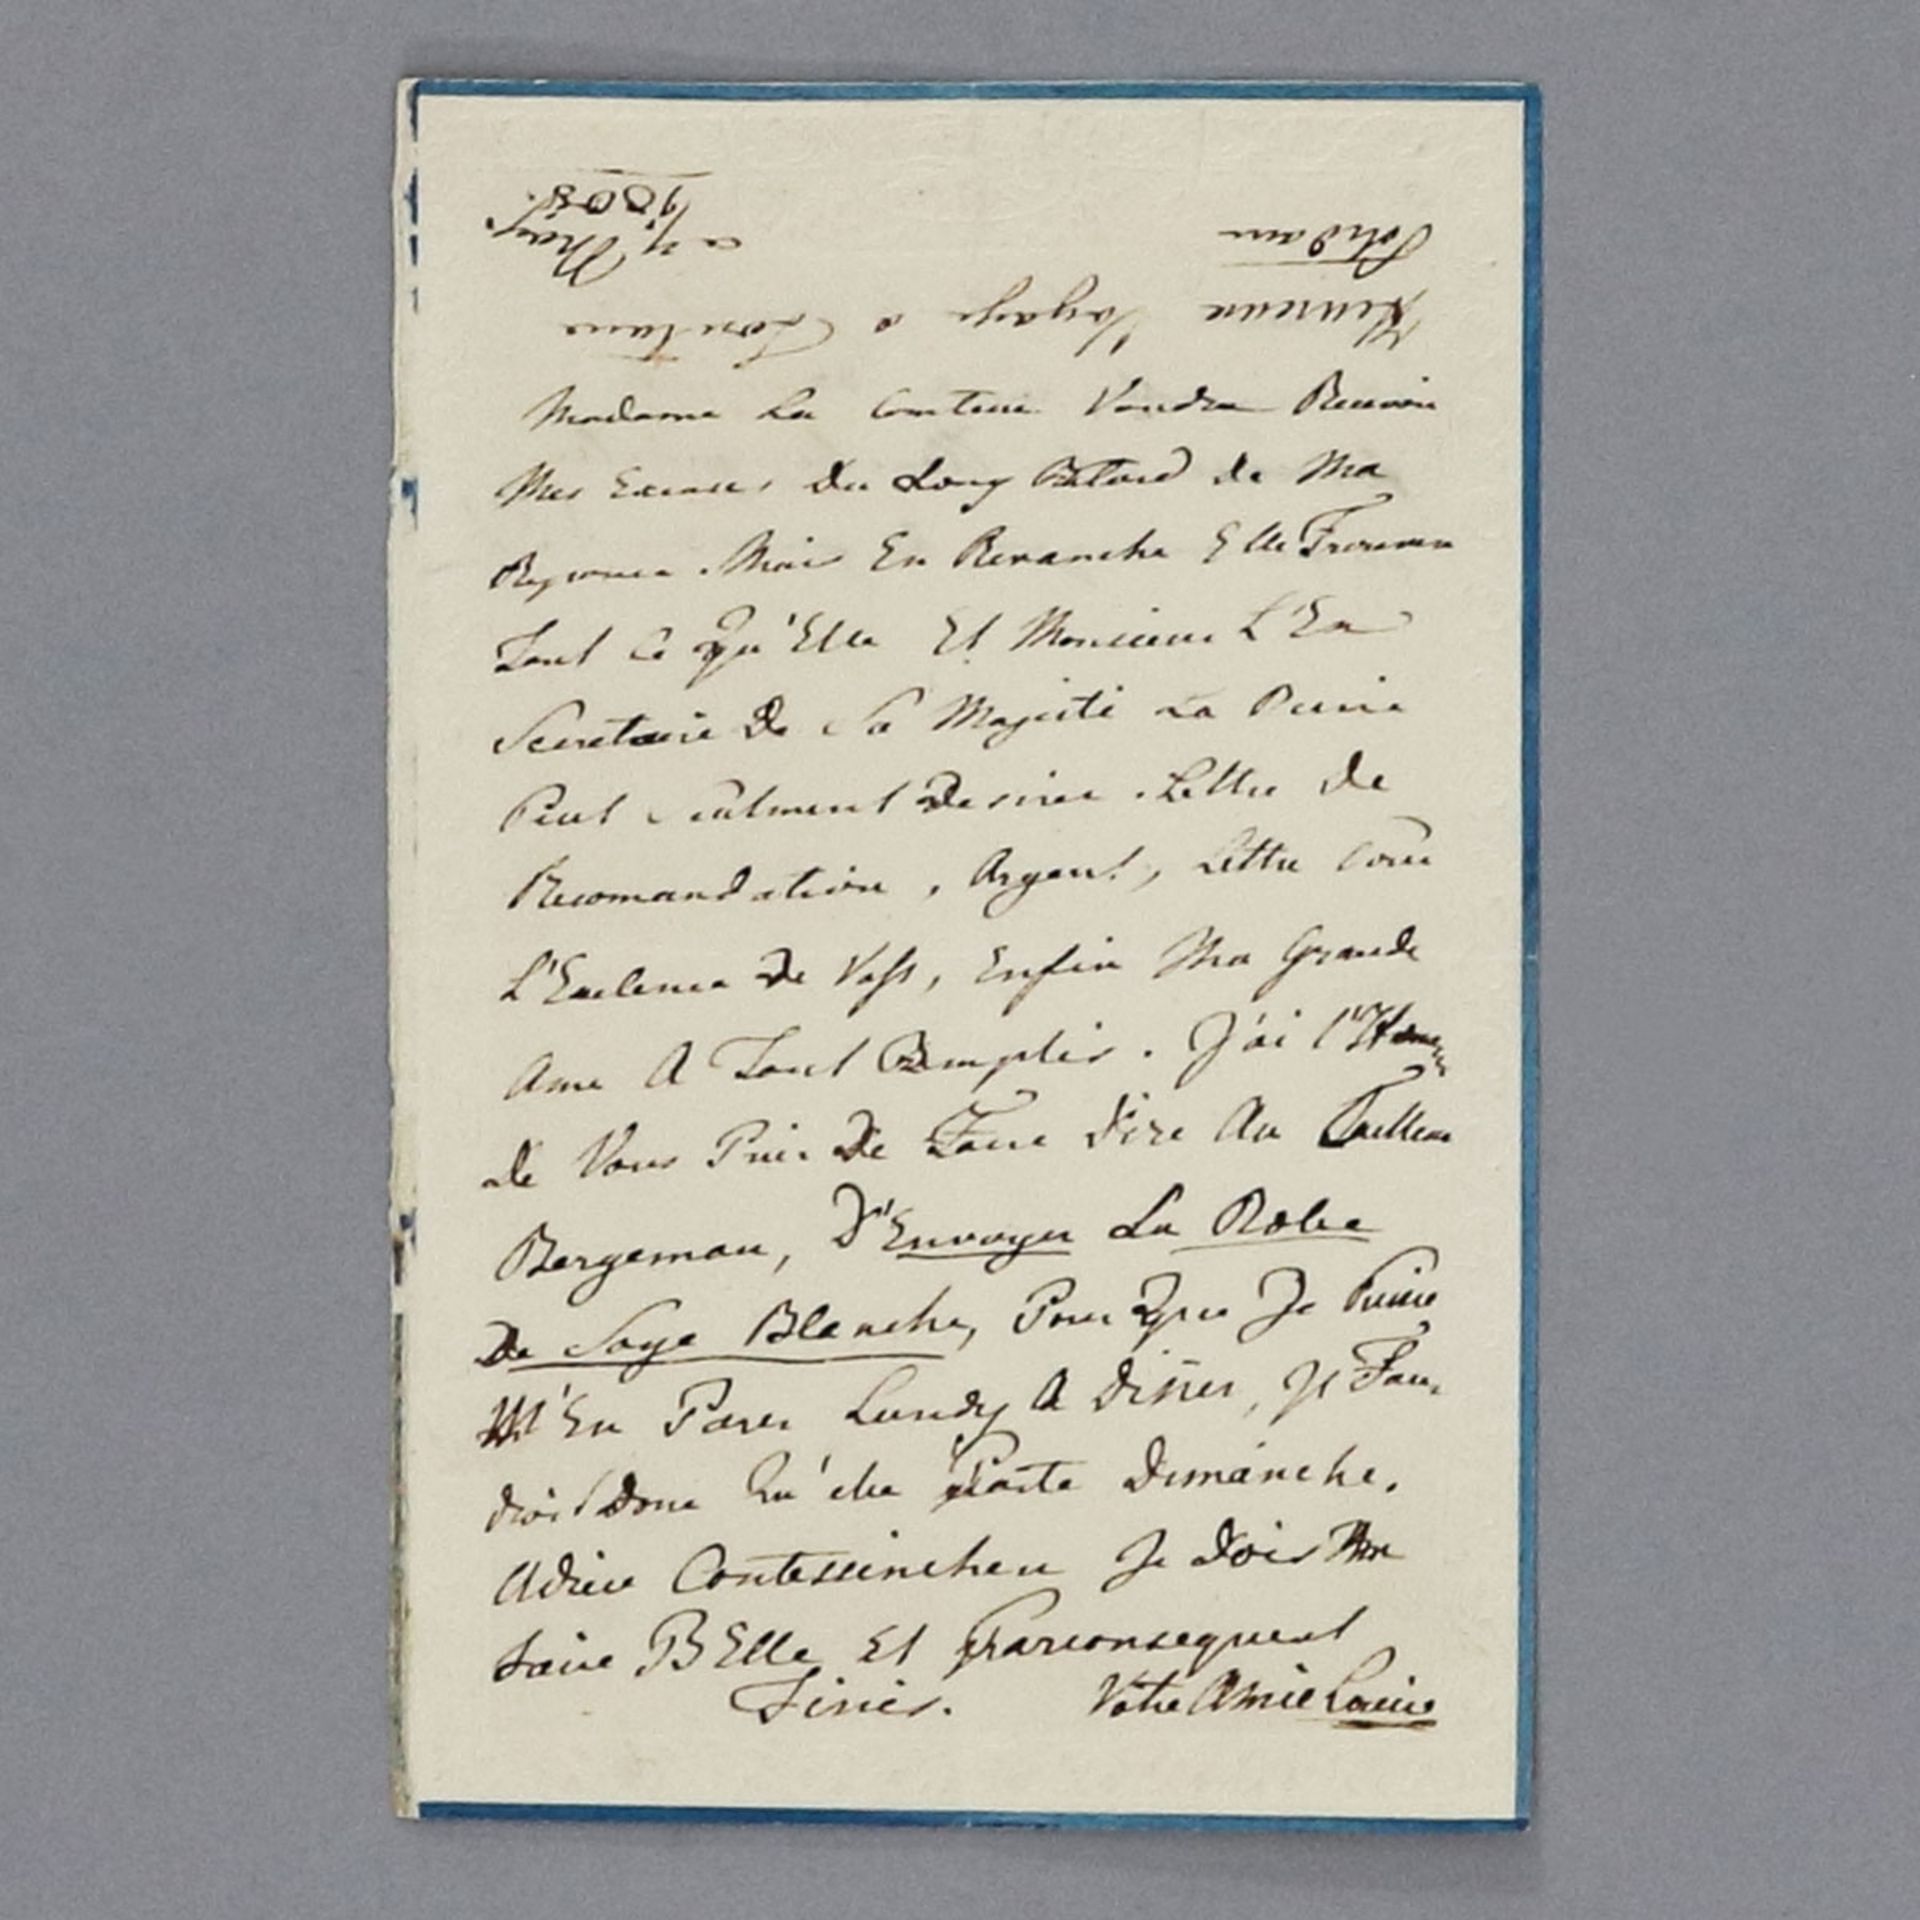 Heureux Voyage a
Potsdam
ce 7 May
1808.
Madame La Comtesse Voudra Recevoir
Mes Excuses Du Long Retard de Ma
Reponce. Mais En Revanche Elle Trouvera
Tout Ce Qu'Elle Et Monsieur L'Ex
Secretaire De Sa Majesté La Reine
Peut Seulment Desirer. Lettre De
Recomandation, Argent, Lettre Pour
L'Exelence De Voss, Enfin Ma Grande
Ame A Tout Remplis. J'ai l'Honneur
de Vous Prier De Faire Dire Au Tailleur
Bergeman, D'Envoyer La Robe
De Soye Blanche, Pour Que Je Puisse
M'En Parer Lundy A Diner, Il Fau-
droit Donc Qu'elle Parte Dimanche.
Adieu Contessinchen Je Dois Me
faire BElle Et Parconsequent
Finir. Votre Amie Louise